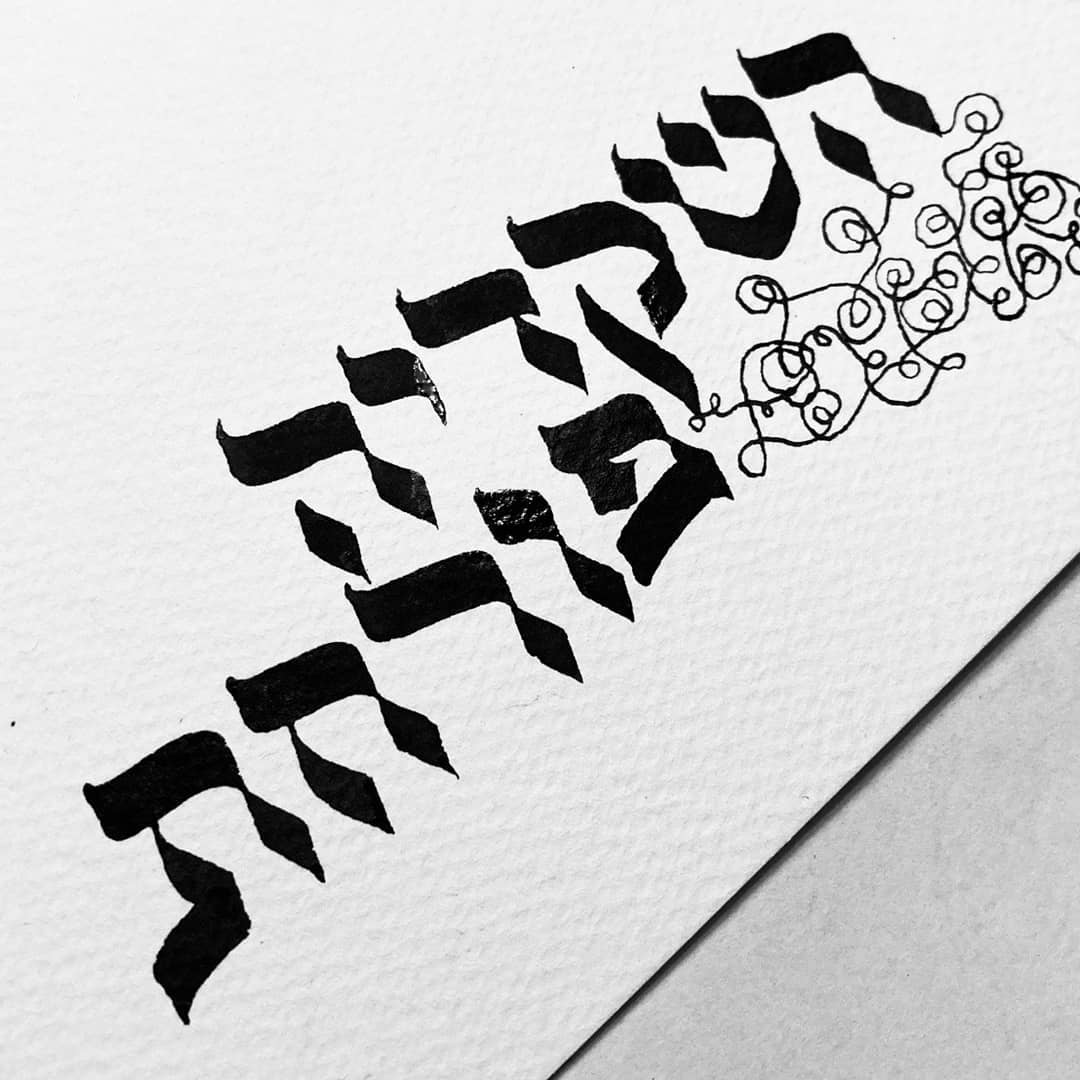 השקדיה
פורחת